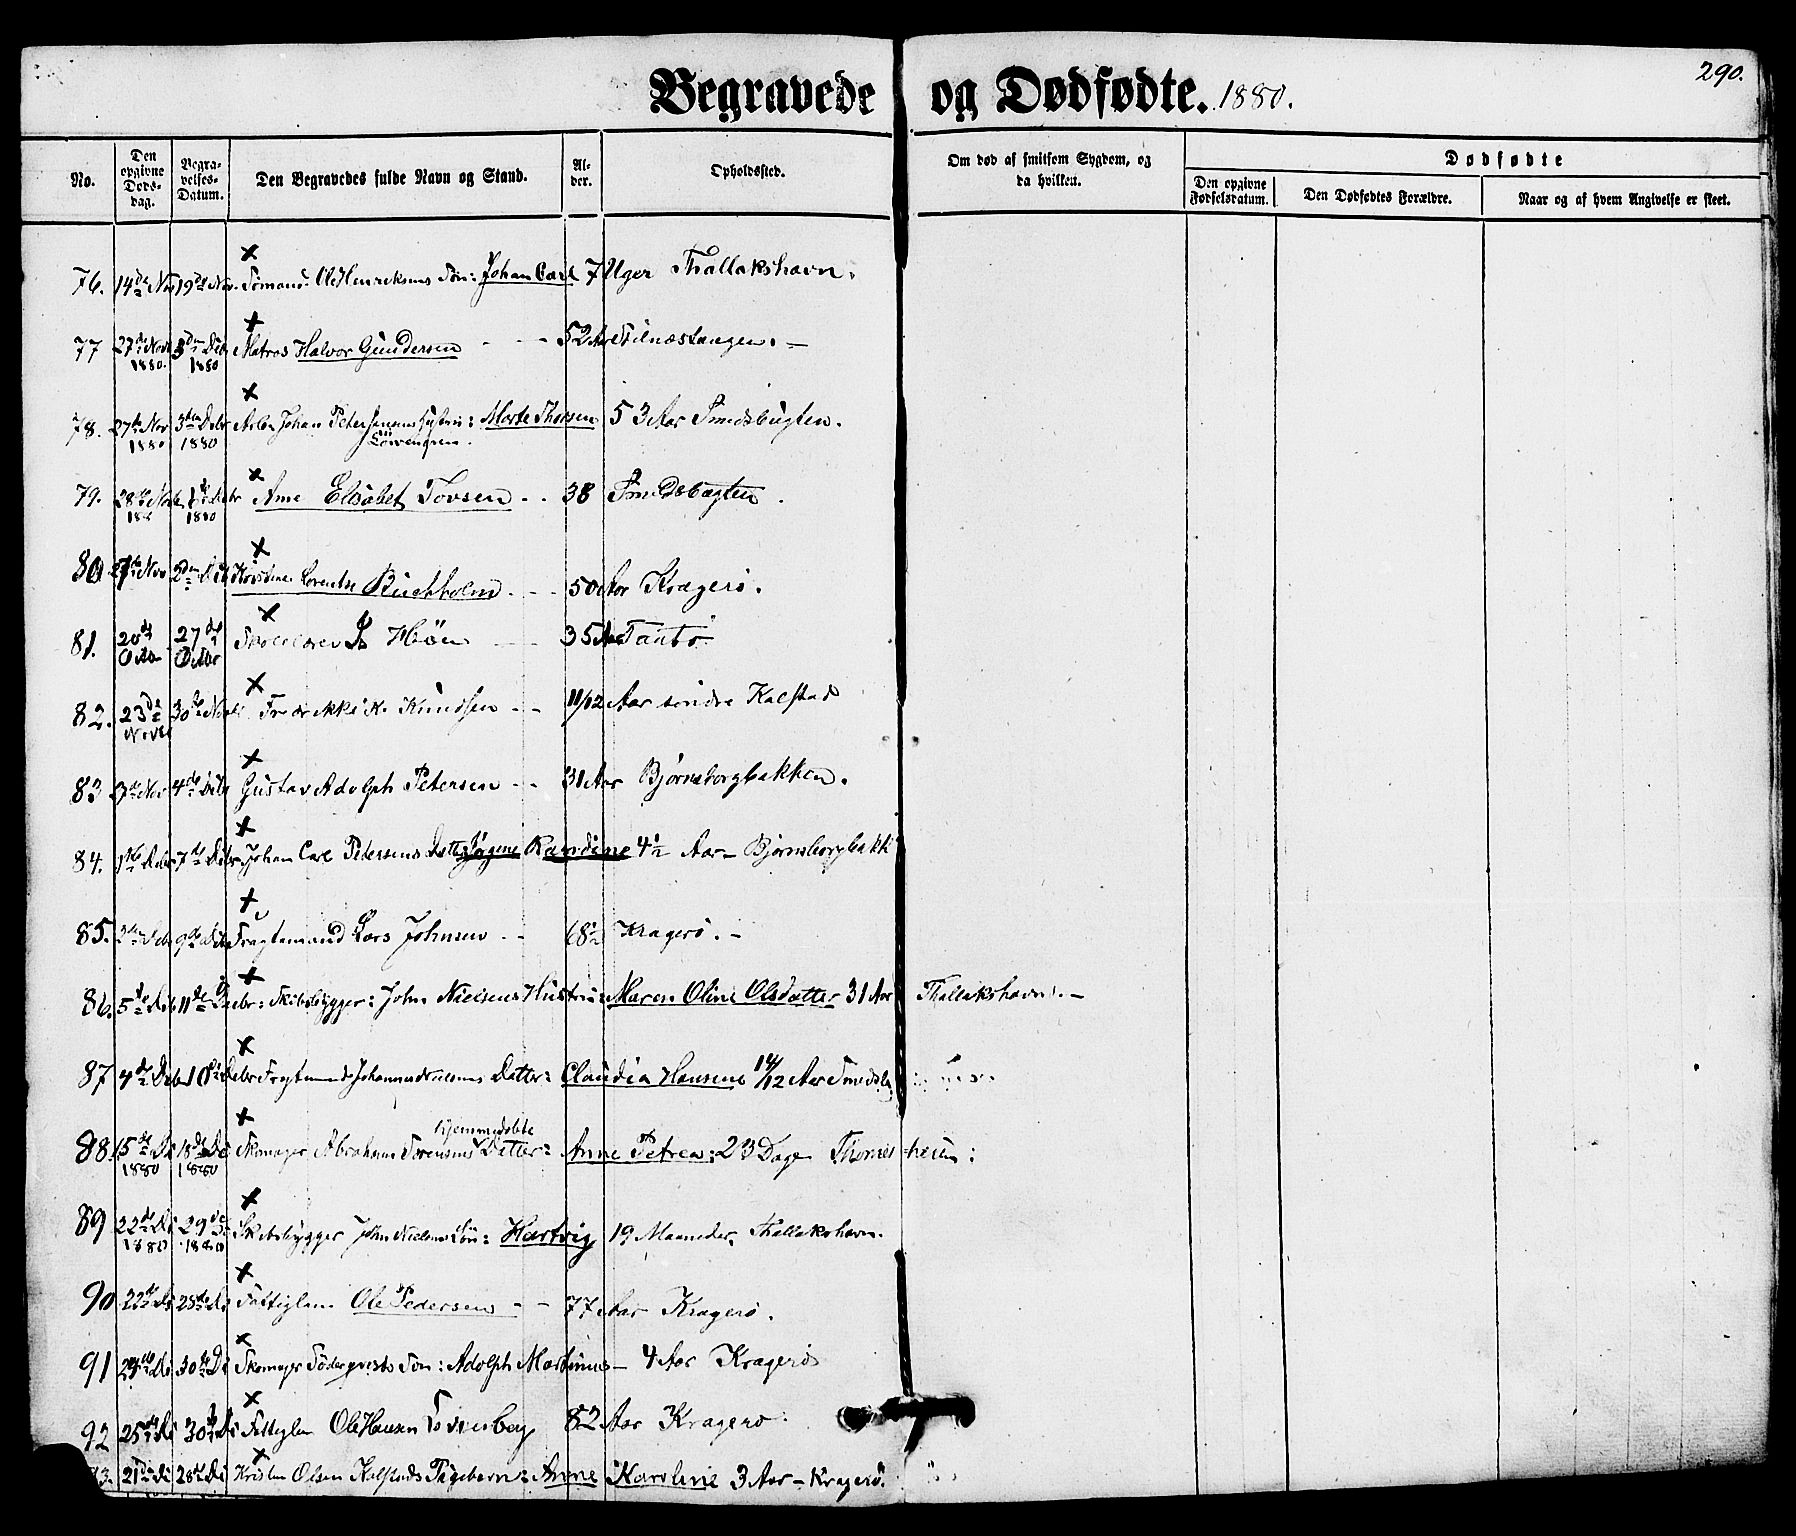 290.
Begravede og Dødfødte. 1880.
No.
Den opgivne Døds-dag.
Begra-velses-Datum.
Den Begravedes fulde Navn og Stand.
Al-der.
Opholdssted.
Om død af smitsom Sygdom, og da hvilken.
Dødfødte
Den opgivne Fødselsdatum.
Den Dødfødtes Forældre.
Naar og af hvem Angivelse er skeet.
76. 14de Nov 19de Nov. Sømand Ole Henriksens Søn: Johan Carl 7 Uger Thallakshavn.
77 27de Novb 1880. 3den Debr 1880 Matros Halvor Gundersen - - - 52 Aar
78. 27de Nov 1880 3den Debr 1880 Arb. Johan Peter Jensens Hustru: Marte Thorsen 53 Aar Smedsbugten.
Løvengren.
79. 28de 1880 Ane Elisabet Tovsen - - 38 Smedsbugten.
80 Nov 2den Lorentse Buchholm - - - 50 Aar Kragerø.
81. 20de Octbr 27de Octbr Høen 35 Aar Tantø
82. 23de Novbr 30de Novbr Fredrikke K. Knudsen - - 11/12 Aar søndre Kalstad
83 3de Nov 4de Debr Gustav Adolph Petersen - - 31 Aar Bjørnsborgbakken.
84. 1ste Debr 7de Debr Johan Carl Petersens Datter Jørgine Randine 4 1/2 Aar - Bjørnsborgbakk
85. 9de Debr Fragtemand Lars Johnsen - - 68 1/2 Kragerø. -
86. 5te Deb. 11de Debr: Skibsbygger: John Nielsens Hustru: Maren Oline Olsdatter 31 Aar Thallakshavn. -
87 4de Deb 10de Debr Fragtmand Datter: Claudia Hansine 14/12 Aar
88. 15de De 1880 18de De 1880 Skomager Abraham Sørensens hjemmedøbte Datter: Anne Petrea: 23 Dage Thomesheien:
89 22de De 1880 29de De 1880 Skibsbygger John Nielsens Søn: Hartvig 19 Maaneder. Thallakshavn.
90 22de De 28de De Fattiglem Ole Pedersen - - 77 Aar Kragerø.
91 24de De 30te De Skomager Søderqvists Søn: Adolph Martinus - 4 Aar Kragerø
92 25de De 30te De Fattiglem Ole Hansen 82 Aar Kragerø.
93. 21de De 28de De Kristen Olsen Kalstads Pigebarn: Anne Karoline 3 Aar - Kragerø.